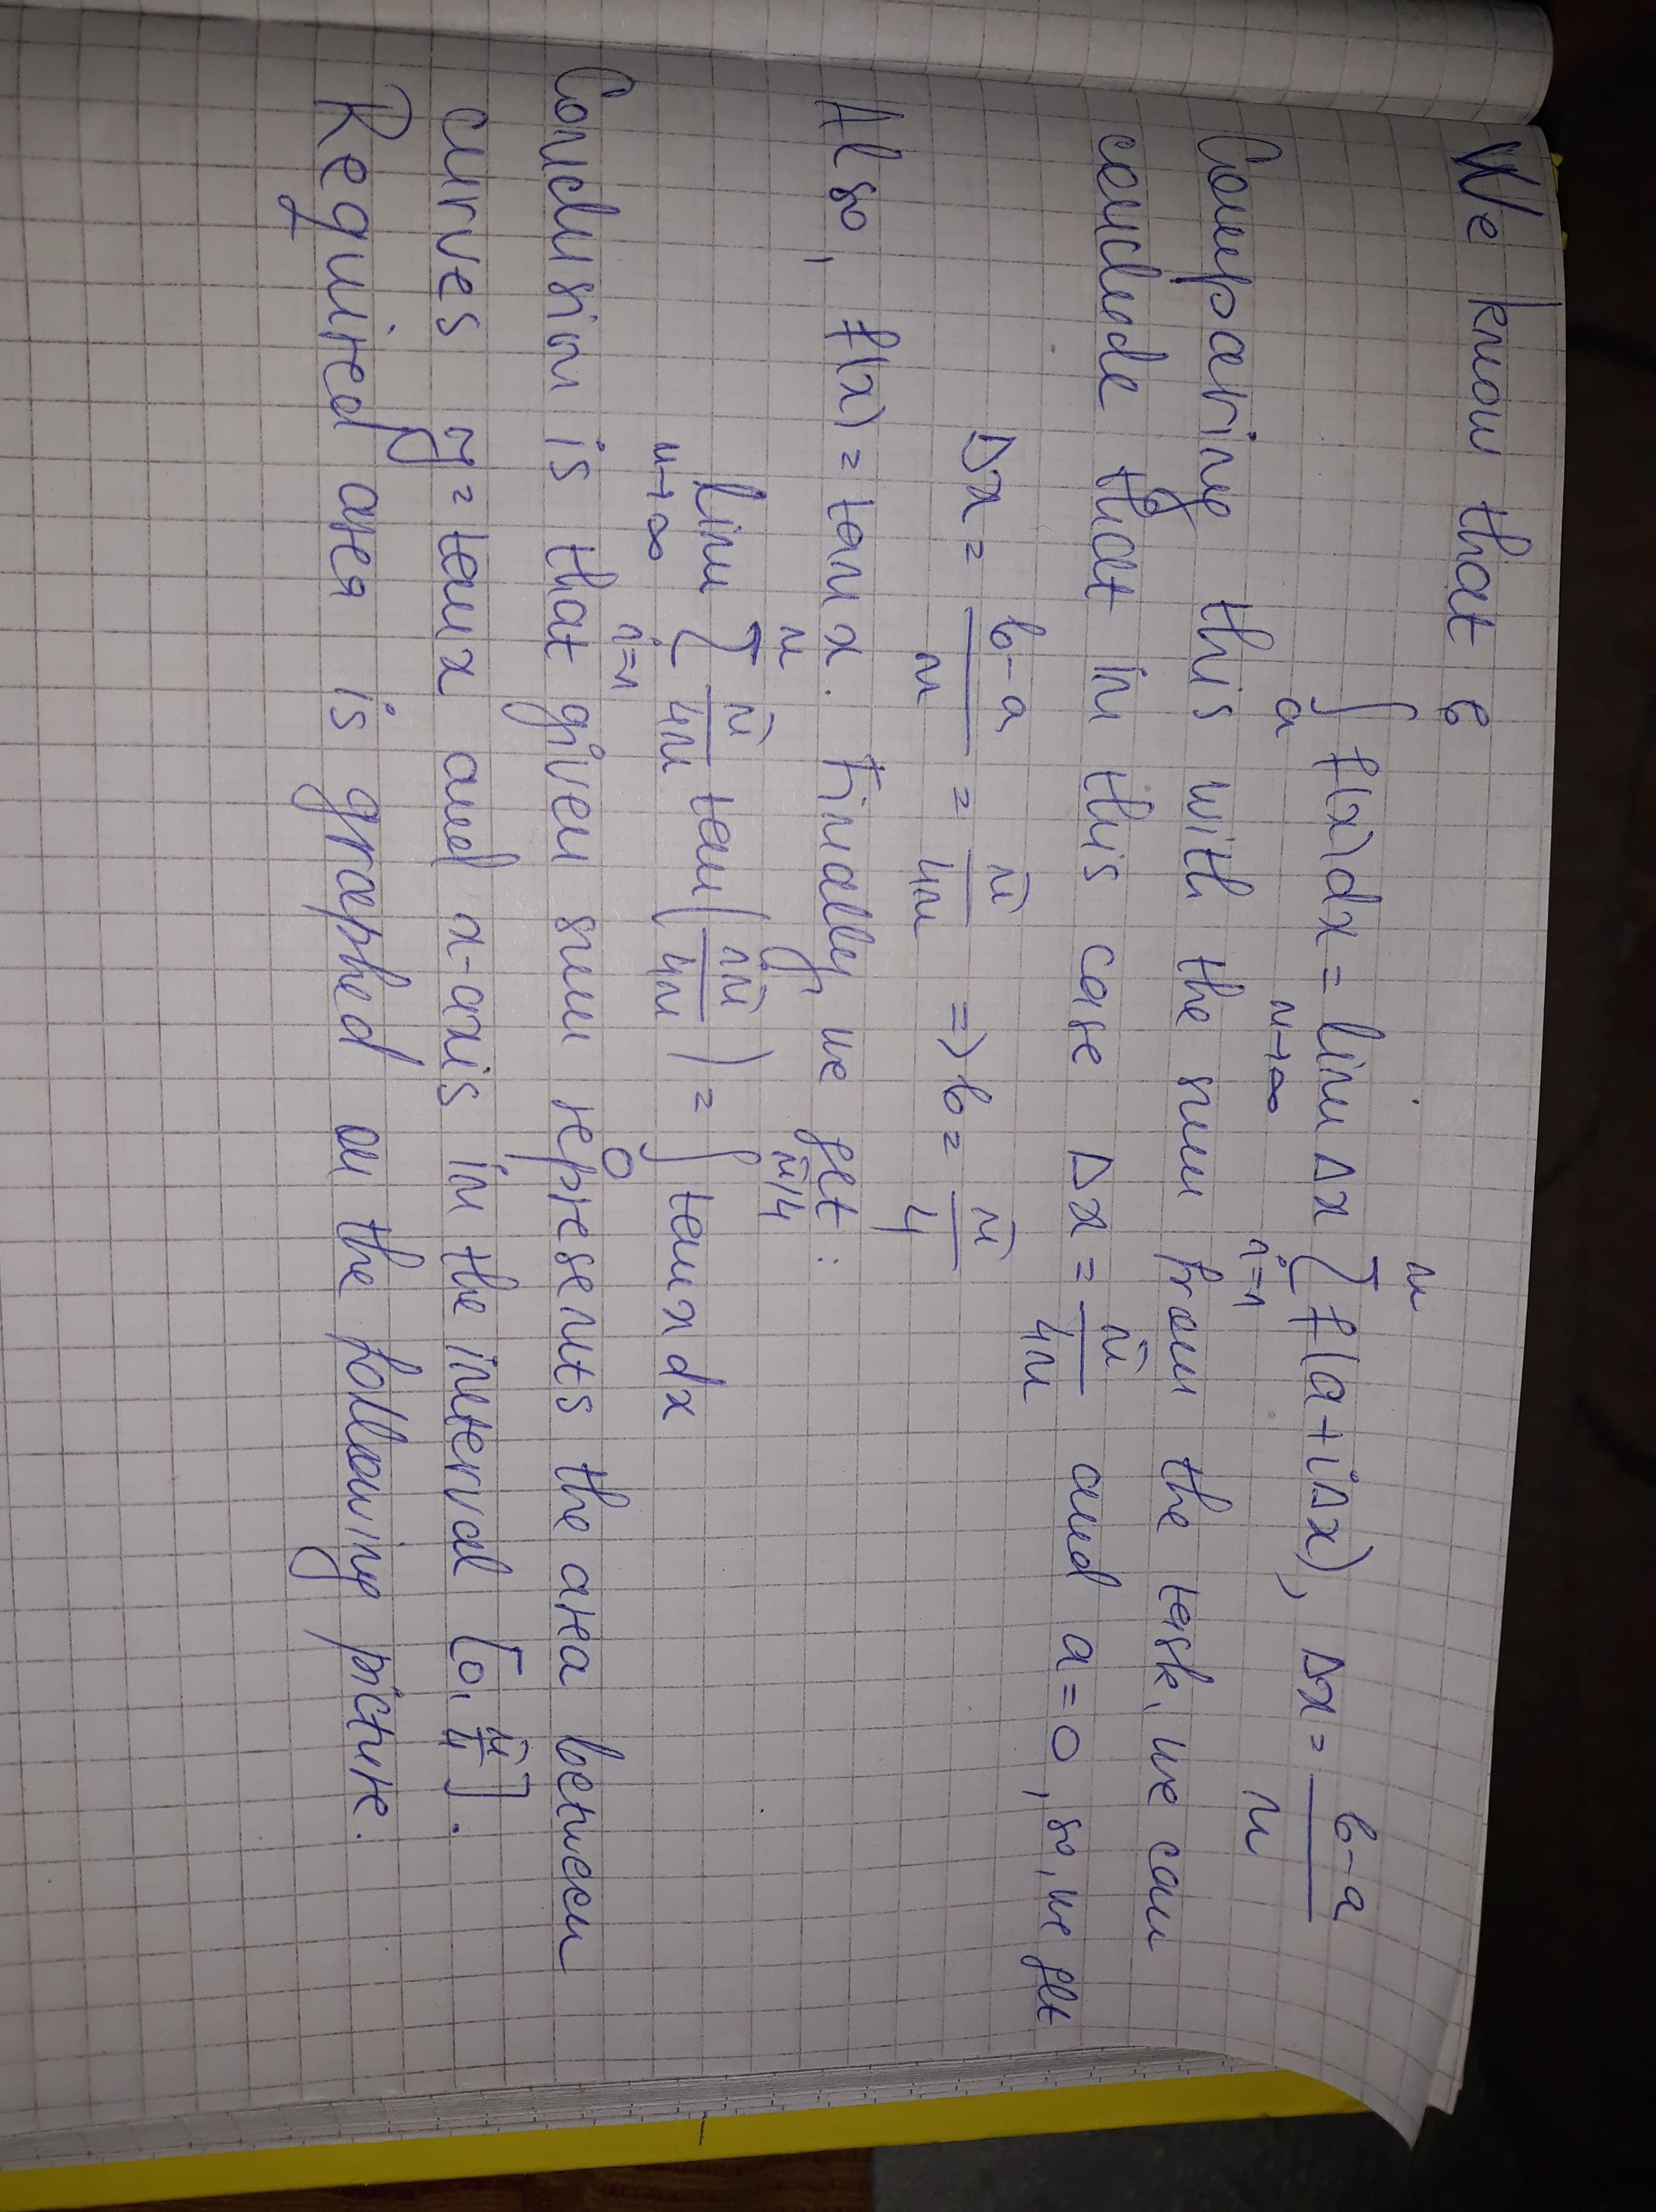 We know that ∫_a^b f(x)dx = lim_{n→∞} Δx ∑_{i=1}^n f(a+iΔx), Δx = (b-a)/n
Comparing this with the sum from the task, we can
conclude that in this case Δx = π/4n and a=0, so, we get
Δx = (b-a)/n = π/4n => b = π/4
Also, f(x) = tan x. Finally, we get:
lim_{n→∞} ∑_{i=1}^n π/4n tan(iπ/4n) = ∫_0^{π/4} tan x dx
Conclusion is that given sum represents the area between
curves y = tan x and x-axis in the interval [0, π/4].
Required area is graphed on the following picture.